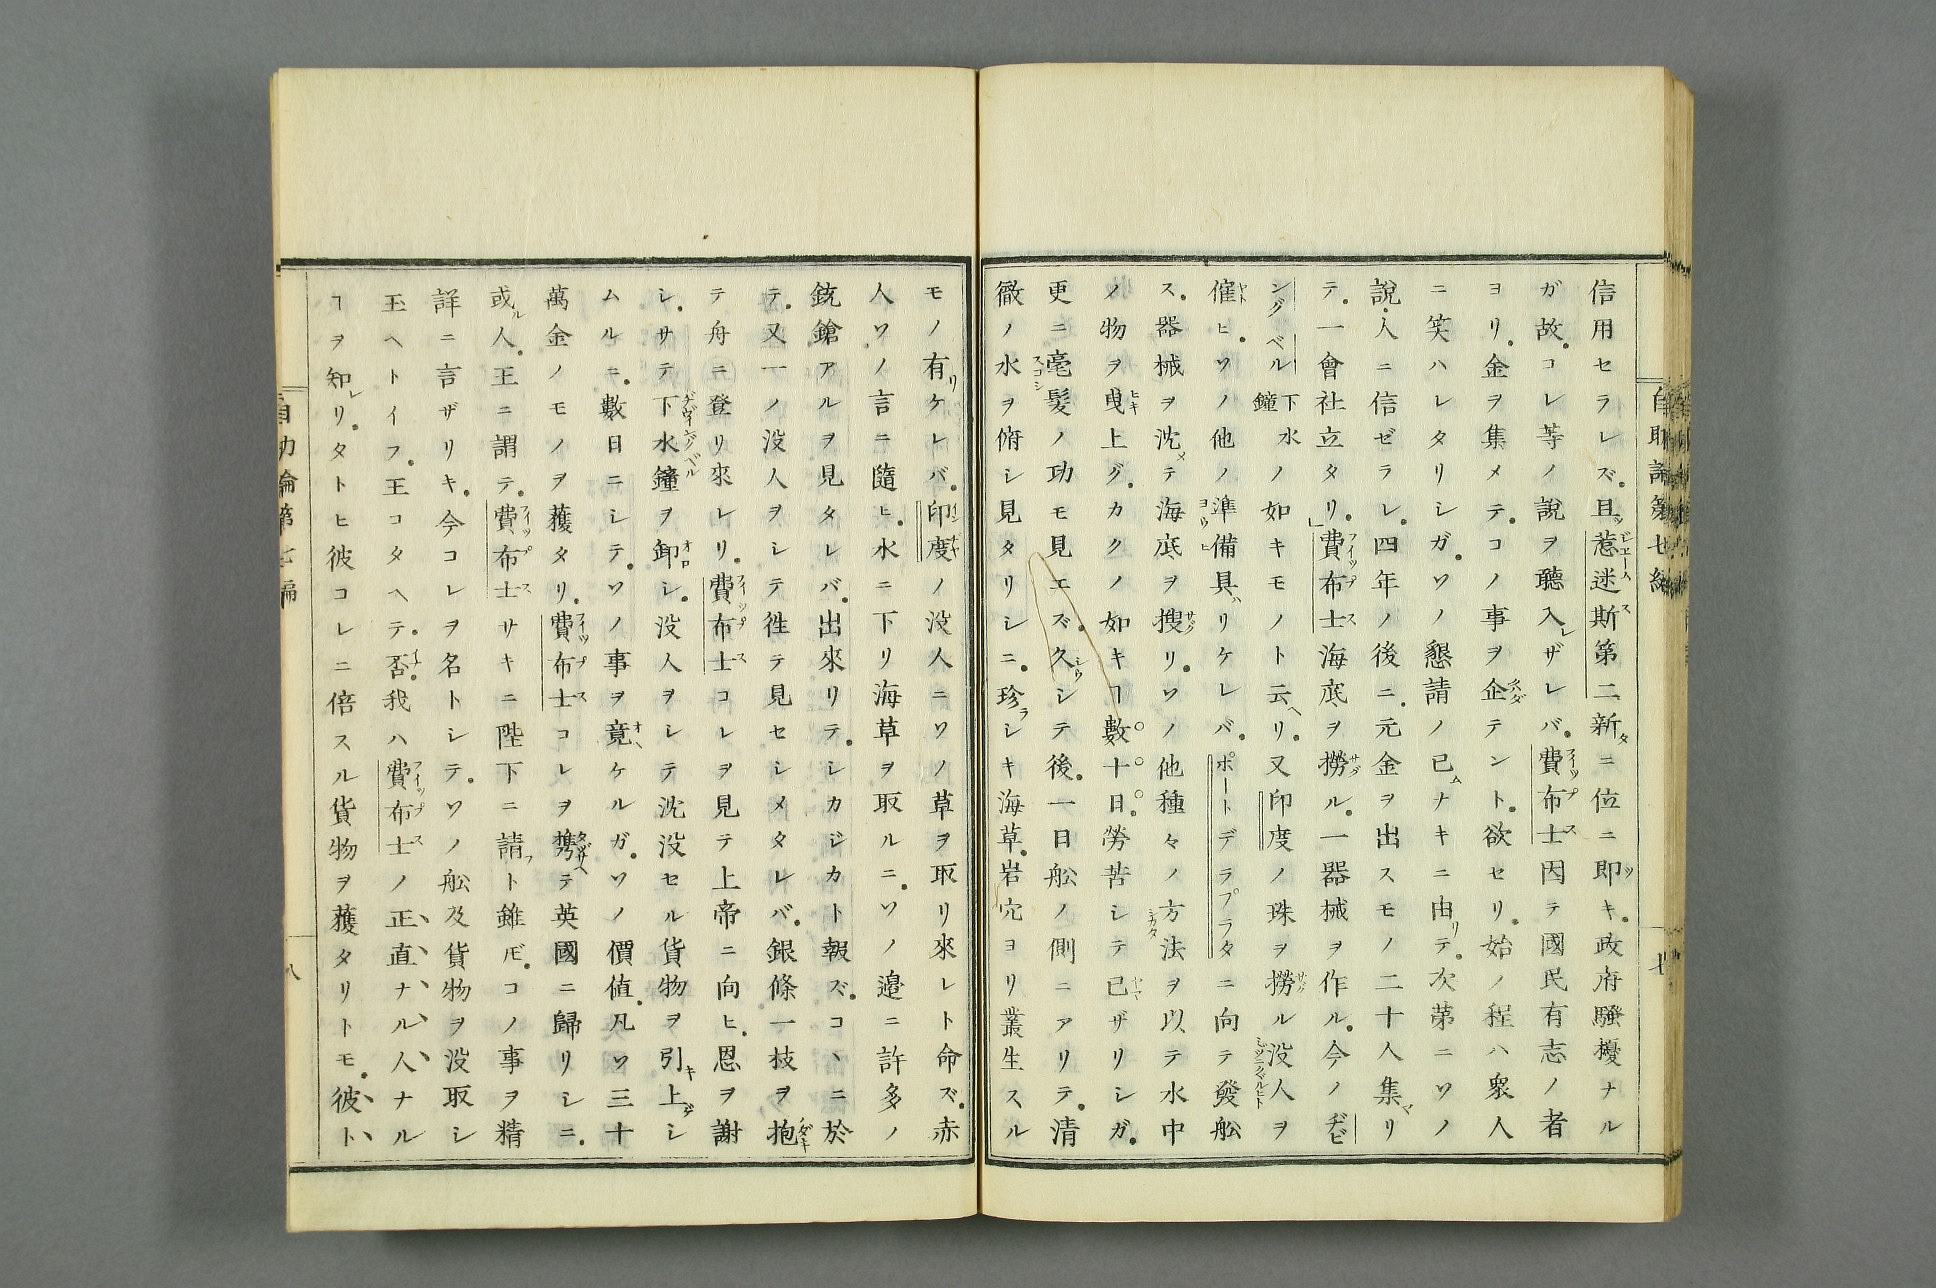 信用セラレズ。且惹迷斯第二、新ニ位ニ即キ。政府騷擾ナル
ガ故。コレ等ノ說ヲ聽入レザレバ。費布士因テ國民有志ノ者
ヨリ。金ヲ集メテ。コノ事ヲ企テント。欲セリ。始ノ程ハ衆人
ニ笑ハレタリシガ。ソノ懇請ノ已ムナキニ由リテ。次第ニソノ
說。人ニ信ゼラレ。四年ノ後ニ。元金ヲ出スモノ二十人集リ
テ。一會社立タリ。」費布士海底ヲ撈ル。一器械ヲ作ル。今ノヂビ
ングベル下水鐘ノ如キモノト云ヘリ。又印度ノ珠ヲ撈ル没人ヲ
催ヒ。ソノ他ノ準備具ハリケレバ。ポートデラプラタニ向テ發舩
ス。器械ヲ沈メテ海底ヲ搜リ。ソノ他種々ノ方法ヲ以テ水中
ノ物ヲ曳上グ。カクノ如キヿ數十日。勞苦シテ已ザリシガ。
更ニ毫髮ノ功モ見エズ。久シテ後。一日舩ノ側ニアリテ。清
徹ノ水ヲ俯シ見タリシニ。珍ラシキ海草。岩穴ヨリ叢生スル
モノ有リケレバ。印度ノ没人ニソノ草ヲ取リ來レト命ズ。赤
人ソノ言ニ隨ヒ。水ニ下リ海草ヲ取ルニ。ソノ邉ニ許多ノ
銃鎗アルヲ見タレバ。出來リテ。シカジカト報ズ。コヽニ於
テ。又一ノ没人ヲシテ徃テ見セシメタレバ。銀條一枝ヲ抱
テ舟ニ登リ來レリ。費布士コレヲ見テ上帝ニ向ヒ。恩ヲ謝
シ。サテ下水鐘ヲ卸シ。没人ヲシテ沈没セル貨物ヲ引キ上ゲシ
ムルニ。數日ニシテ。ソノ事ヲ竟ケルガ。ソノ價値。凡ソ三十
萬金ノモノヲ獲タリ。費布士コレヲ攜テ英國ニ歸リシニ。
或ル人。王ニ謂テ。費布士サキニ陛下ニ請フト雖𪜈。コノ事ヲ精
詳ニ言ザリキ。今コレヲ名トシテ。ソノ舩及貨物ヲ没取シ
玉ヘトイフ。王コタヘテ。否。我ハ費布士ノ正直ナル人ナル
ヿヲ知レリ。タトヒ彼コレニ倍スル貨物ヲ獲タリトモ。彼ト
自助論第七編
八